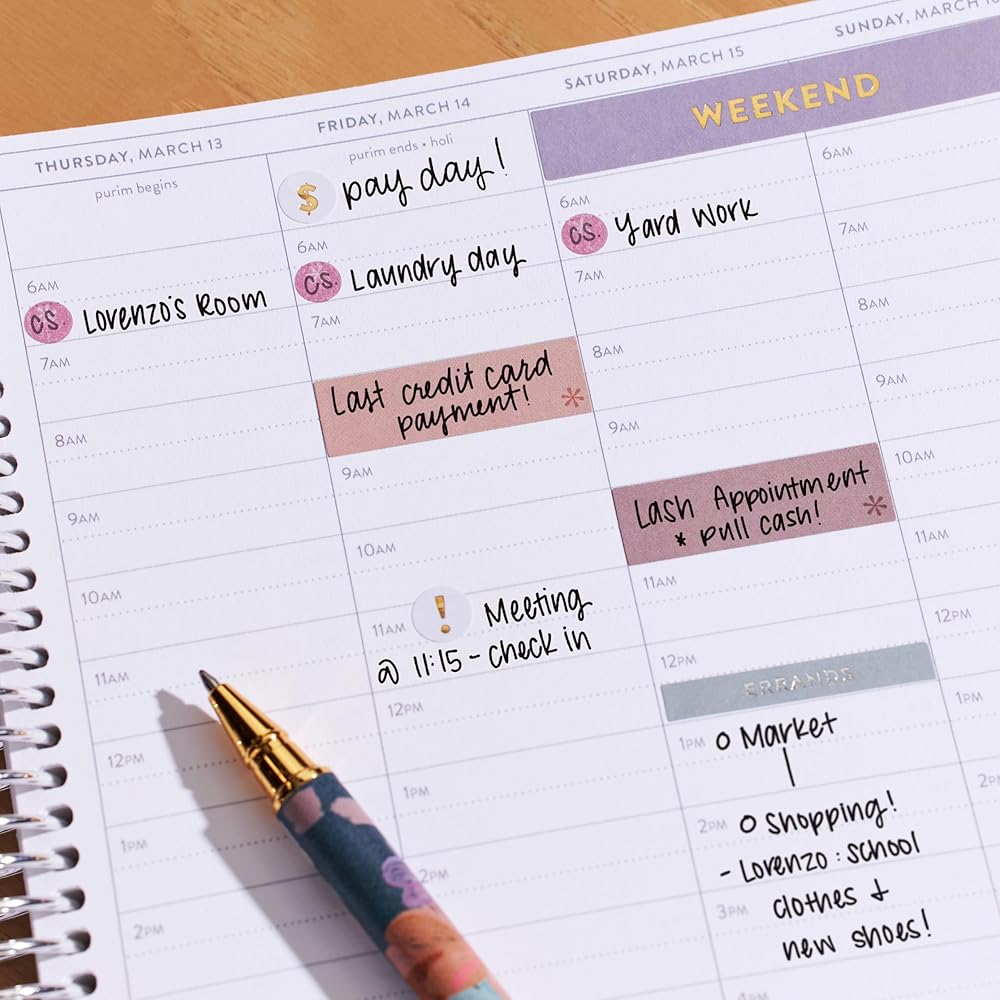 THURSDAY, MARCH 13
purim begins
6AM
CS. Lorenzo's Room
7AM
8AM
9AM
10AM
11AM
12PM
1PM
2PM
FRIDAY, MARCH 14
purim ends • holi
$ pay day!
6AM
CS. Laundry day
7AM
Last credit card
payment! *
9AM
10AM
11AM ! Meeting
@ 11:15 - check in
12PM
1PM
2PM
SATURDAY, MARCH 15
WEEKEND
6AM
CS. Yard Work
7AM
8AM
9AM
Lash Appointment
* pull cash! *
11AM
12PM
ERRANDS
1PM O Market
2PM O Shopping!
- Lorenzo: school
3PM clothes +
new shoes!
SUNDAY, MARCH
6AM
7AM
8AM
9AM
10AM
11AM
12PM
1PM